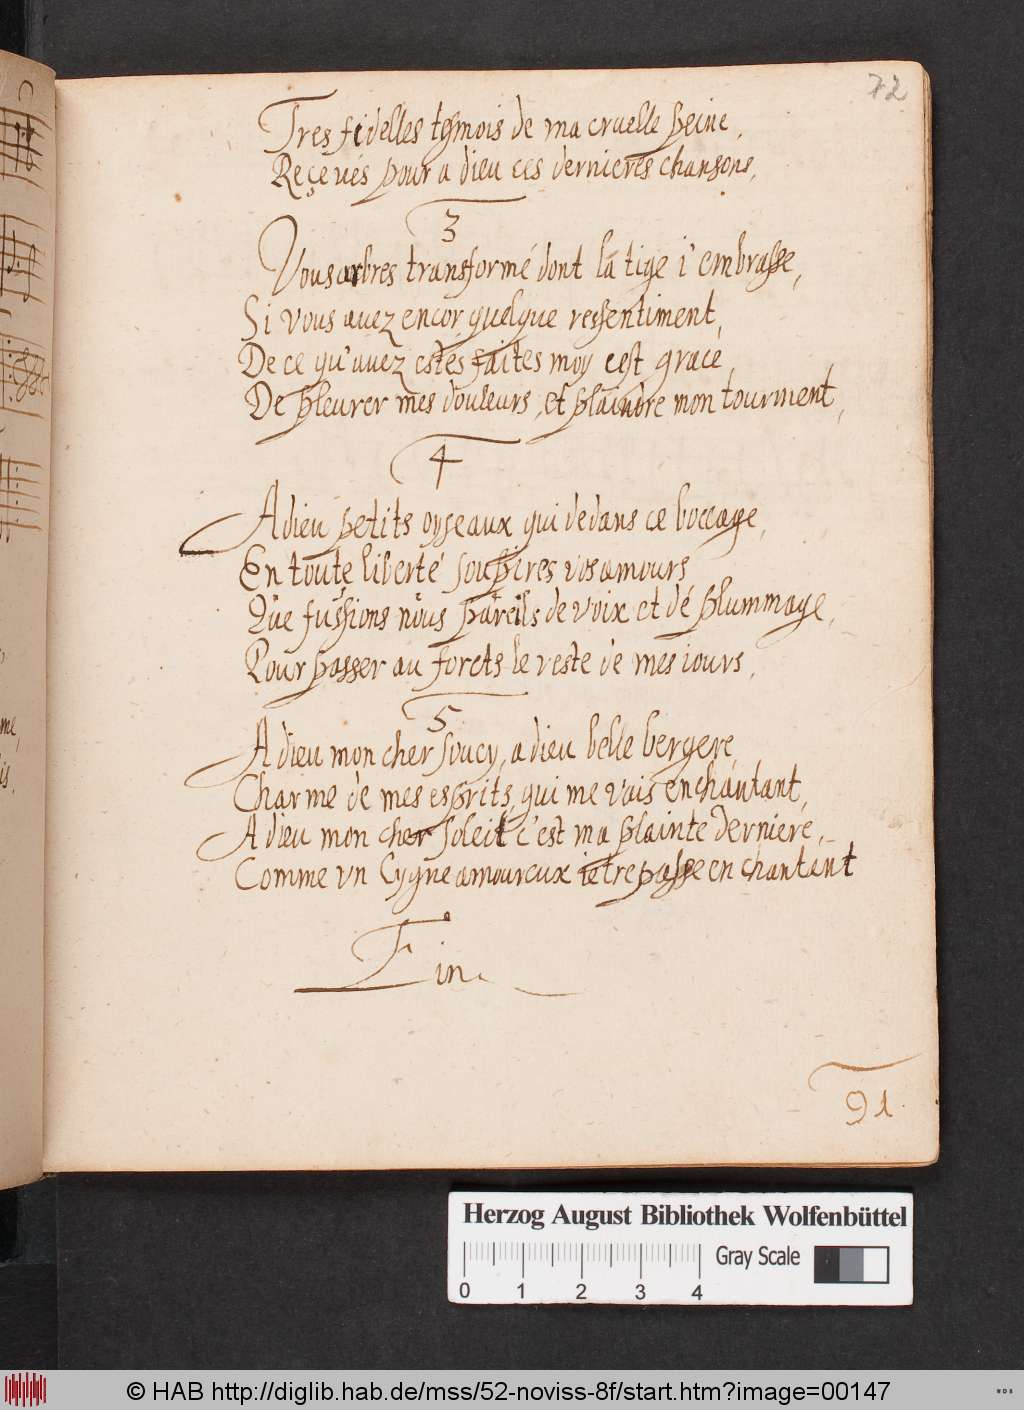 72
Tres fidelles tesmois de ma cruelle peine,
Reçeués pour a dieu ces dernieres chansons,
3
Vous arbres transformé dont la tige i'embrasse,
Si vous auez encor quelque ressentiment,
De ce qu'auez estes faites moy cest grace,
De pleurer mes douleurs, et plaindre mon tourment,
4
Adieu petits oyseaux qui dedans ce boccage,
En toute liberté soupires vos amours
Que fussions nous pareils de voix et dé plummage,
Pour passer au forets le reste de mes iours,
5
A dieu mon cher soucy, a dieu belle bergere,
Charme de mes esprits, qui me vais enchantant,
A dieu mon cher soleil c'est ma plainte derniere,
Comme vn Cygne amoureux ie trepasse en chantant
Fin.
91.
Herzog August Bibliothek Wolfenbüttel
Gray Scale
0 1 2 3 4
© HAB http://diglib.hab.de/mss/52-noviss-8f/start.htm?image=00147